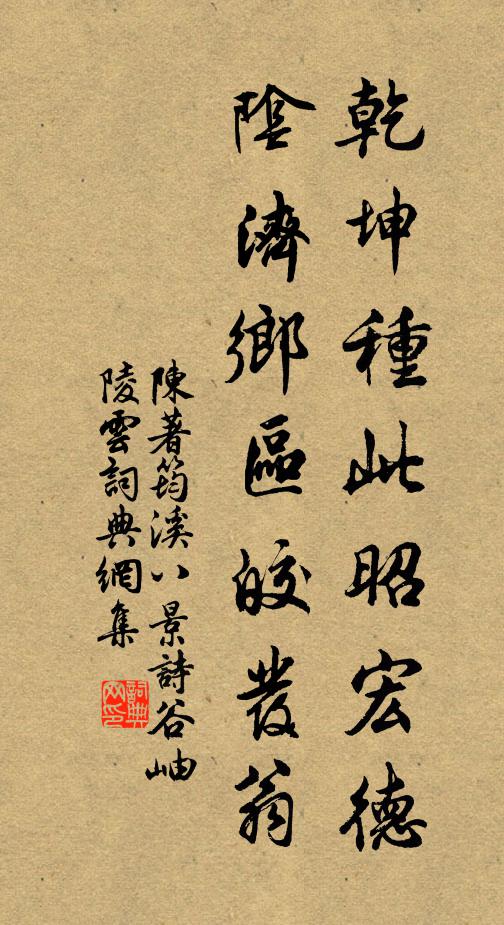 乾坤種此昭宏德
陰濟鄉區皎發翁
陳著筠溪八景詩谷岫
陵雲詞典網集
詞典網印